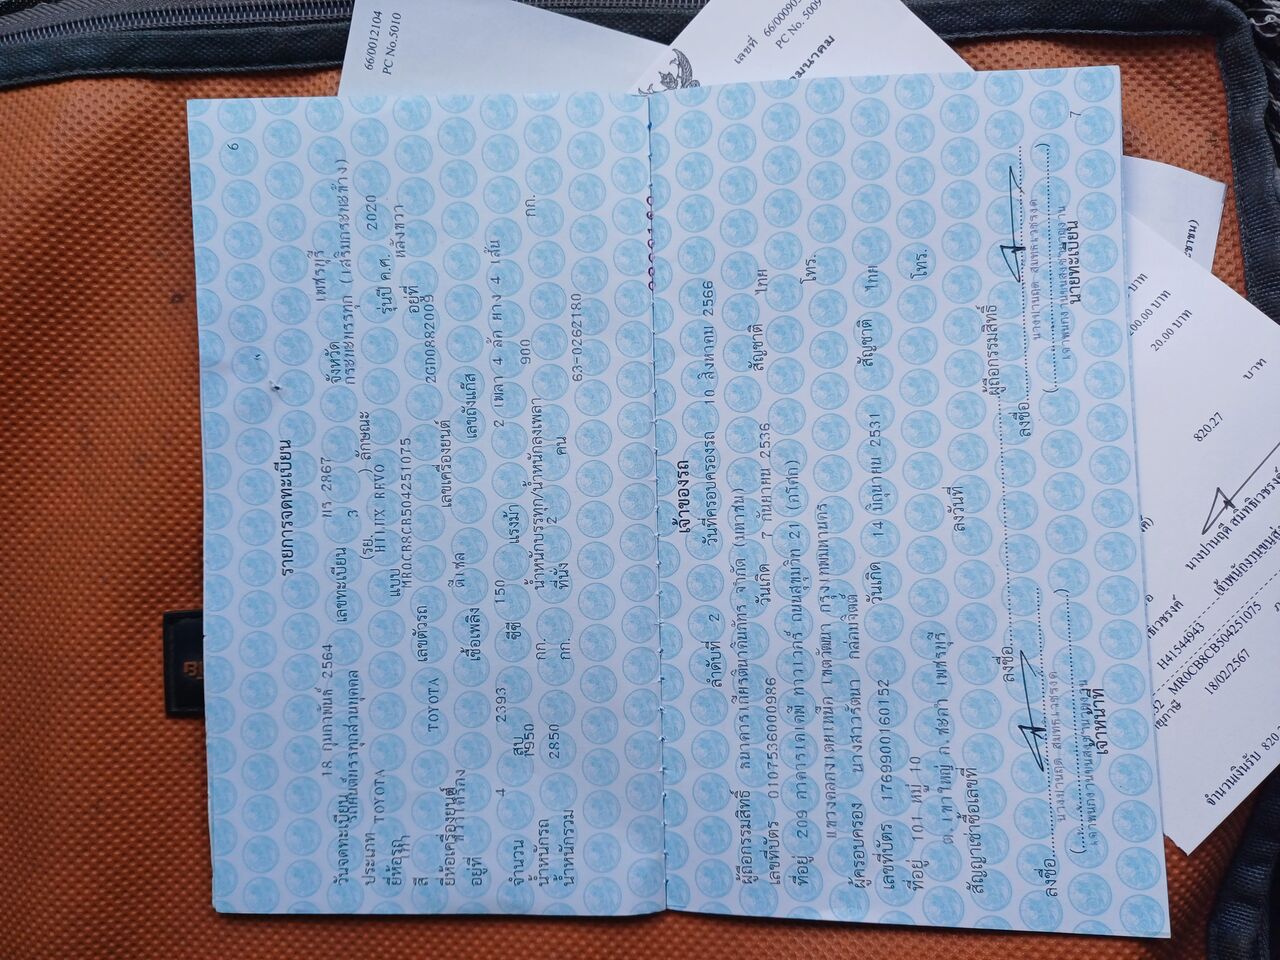 66/0012104
PC No.5010
เลขที่ 66/00090
PC No. 5009
มนาคม
6
รายการจดทะเบียน
วันจดทะเบียน 18 กุมภาพันธ์ 2564 เลขทะเบียน 2867 จังหวัด เพชรบุรี
ประเภท รถยนต์บรรทุกส่วนบุคคล (รย. 3 ) ลักษณะ กระบะบรรทุก (เสริมกระบะข้าง)
ยี่ห้อรถ TOYOTA แบบ HILUX REVO รุ่นปี ค.ศ. 2020
สี เทา เลขตัวรถ MR0CB8CB504251075 อยู่ที่ หลังขวา
ยี่ห้อเครื่องยนต์ TOYOTA เลขเครื่องยนต์ 2GD0882009
อยู่ที่ เชื้อเพลิง ดีเซล เลขถังแก๊ส
จำนวน 4 สูบ 2393 ซีซี 150 แรงม้า 2 เพลา 4 ล้อ ยาง 4 เส้น
น้ำหนักรถ 1950 กก. น้ำหนักบรรทุก/น้ำหนักลงเพลา 900 กก.
น้ำหนักรวม 2850 กก. ที่นั่ง 2 คน 63-0262180
เจ้าของรถ
ลำดับที่ 2 วันที่ครอบครองรถ 10 สิงหาคม 2566
ผู้ถือกรรมสิทธิ์ ธนาคารเกียรตินาคินภัทร จำกัด (มหาชน)
เลขที่บัตร 0107536000986 วันเกิด 7 กันยายน 2536 สัญชาติ ไทย
ที่อยู่ 209 อาคารเคเคพี ทาวเวอร์ ถนนสุขุมวิท 21 (อโศก) โทร.
แขวงคลองเตยเหนือ เขตวัฒนา กรุงเทพมหานคร
ผู้ครอบครอง นางสาวรัตนา กล่อมจิตต์
เลขที่บัตร 1769900160152 วันเกิด 14 มิถุนายน 2531 สัญชาติ ไทย
ที่อยู่ 101 หมู่ 10 โทร.
ต. เขาใหญ่ อ. ชะอำ เพชรบุรี
สัญญาเช่าซื้อเลขที่ ลงวันที่
ลงชื่อ ผู้ถือกรรมสิทธิ์
ลงชื่อ ลงชื่อ
เจ้าพนักงานขนส่งชำนาญงาน เจ้าพนักงานขนส่งชำนาญงาน
เจ้าหน้าที่ นายทะเบียน
7
บาท
20.00 บาท
820.27 บาท
H41544943
MR0CB8CB504251075
18/02/2567
จำนวนเงินรับ